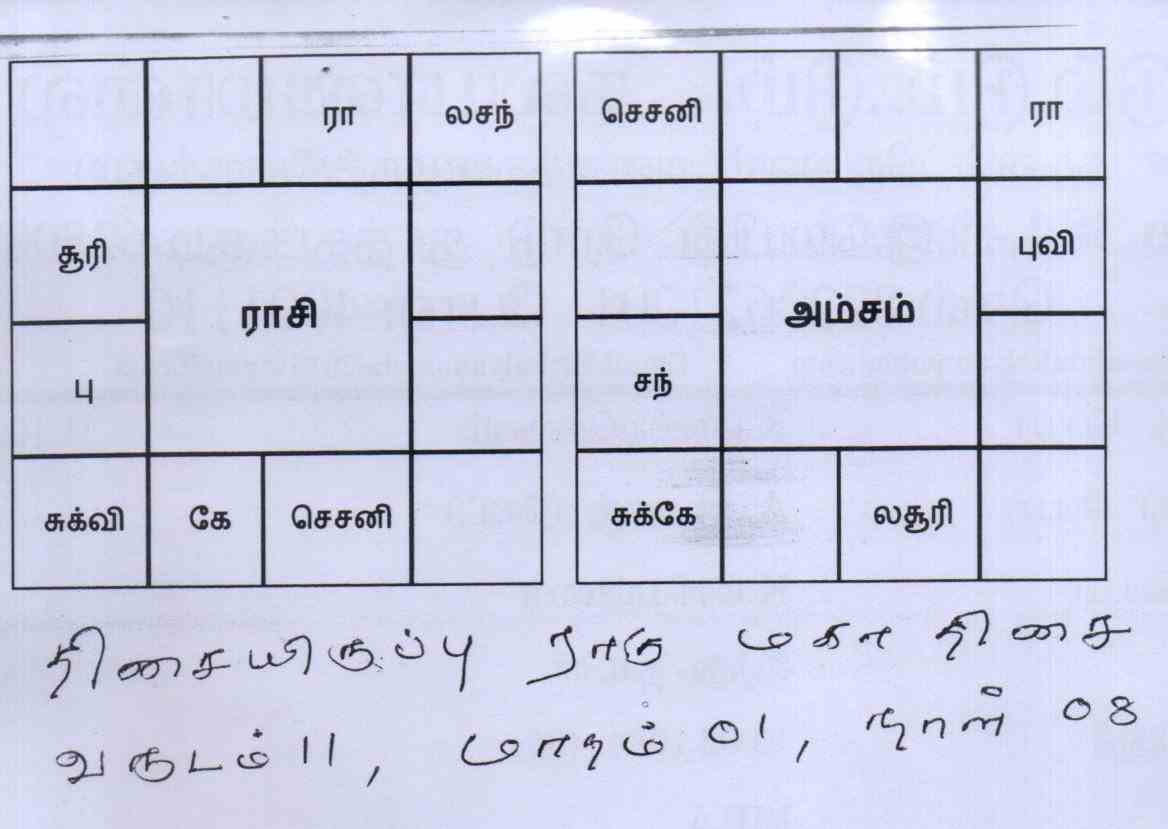 ரா லசந்
சூரி
ராசி
பு
சுக்வி கே செசனி
செசனி ரா
புவி
அம்சம்
சந்
சுக்கே லசூரி
திசையிருப்பு ராகு மகா திசை
வருடம் 11, மாதம் 01, நாள் 08